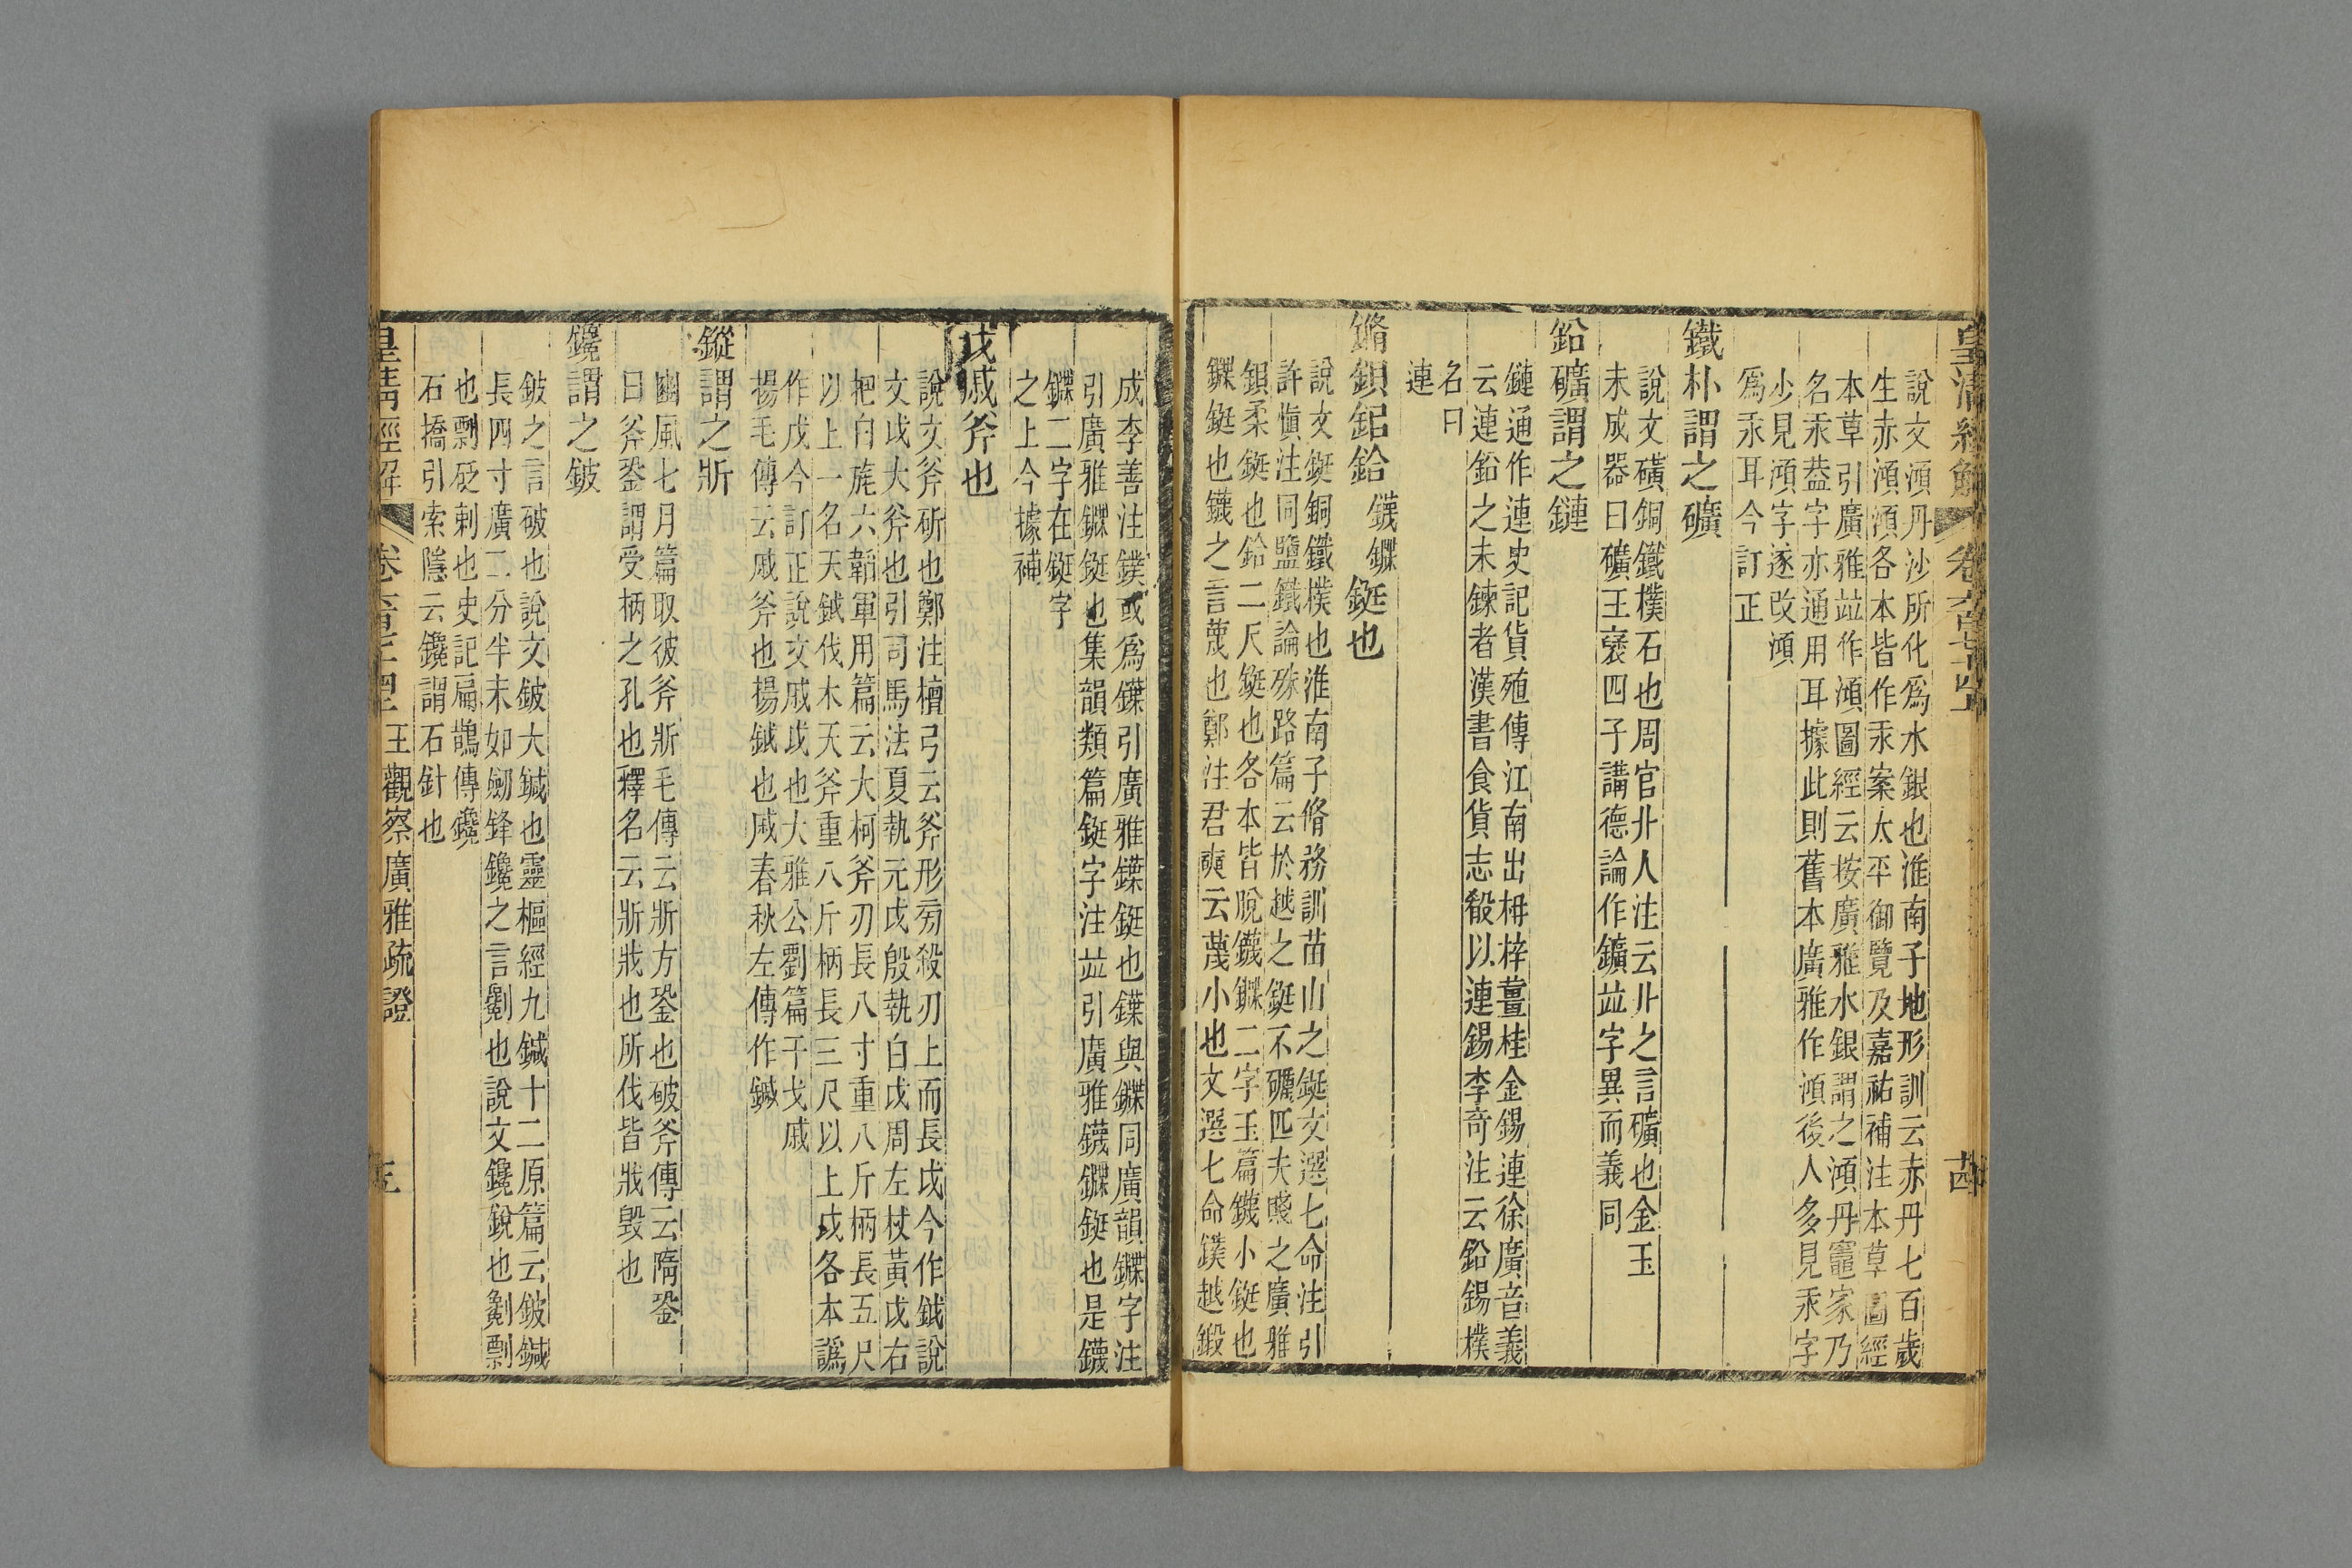 皇清經解
說文澒丹沙所化爲水銀也淮南子地形訓云赤丹七百歲
生赤澒澒各本皆作汞案太平御覽及嘉祐補注本草圖經
本草引廣雅竝作澒圖經云按廣雅水銀謂之澒丹竈家乃
名汞葢字亦通用耳據此則舊本廣雅作澒後人多見汞字
少見澒字遂改澒
爲汞耳今訂正
鐵朴謂之礦
說文磺銅鐵樸石也周官丱人注云丱之言礦也金玉
未成器曰礦王襃四子講德論作鑛竝字異而義同
鉛礦謂之鏈
鏈通作連史記貨殖傳江南出枏梓薑桂金錫連徐廣音義
云連鉛之未鍊者漢書食貨志殽以連錫李奇注云鉛錫樸
名曰
連
鋌也
說文鋌銅鐵樸也淮南子脩務訓苗山之鋌文選七命注引
許愼注同鹽鐵論殊路篇云於越之鋌不礪匹夫賤之廣雅
鋇柔鋌也鉿二尺鋌也各本皆脫䥾鏶二字玉篇䥾小鋌也
鏶鋌也䥾之言蔑也鄭注君奭云蔑小也文選七命鏷越鍛
成李善注鏷或爲鍱引廣雅鍱鋌也鍱與鏶同廣韻鏶字注
引廣雅鏶鋌也集韻類篇鋌字注竝引廣雅䥾鏶鋌也是䥾
鏶二字在鋌字
之上今據補
戉戚斧也
說文斧斫也鄭注檀弓云斧形㫄殺刃上而長戉今作鉞說
文戉大斧也引司馬法夏執元戉殷執白戚周左杖黃戉右
把白旄六韜軍用篇云大柯斧刃長八寸重八斤柄長五尺
以上一名天鉞伐木天斧重八斤柄長三尺以上戉各本譌
作戊今訂正說文戚戉也大雅公劉篇干戈戚
揚毛傳云戚斧也揚鉞也戚春秋左傳作鏚
鏦謂之斨
豳風七月篇取彼斧斨毛傳云斨方銎也破斧傳云隋銎
曰斧銎謂受柄之孔也釋名云斨戕也所伐皆戕毀也
鑱謂之鈹
鈹之言破也說文鈹大鍼也靈樞經九鍼十二原篇云鈹鍼
長四寸廣二分半末如劒鋒鑱之言劖也說文鑱銳也劖剽
也剽砭刺也史記扁鵲傳鑱
石撟引索隱云鑱謂石針也
皇清經解
王觀察廣雅疏證